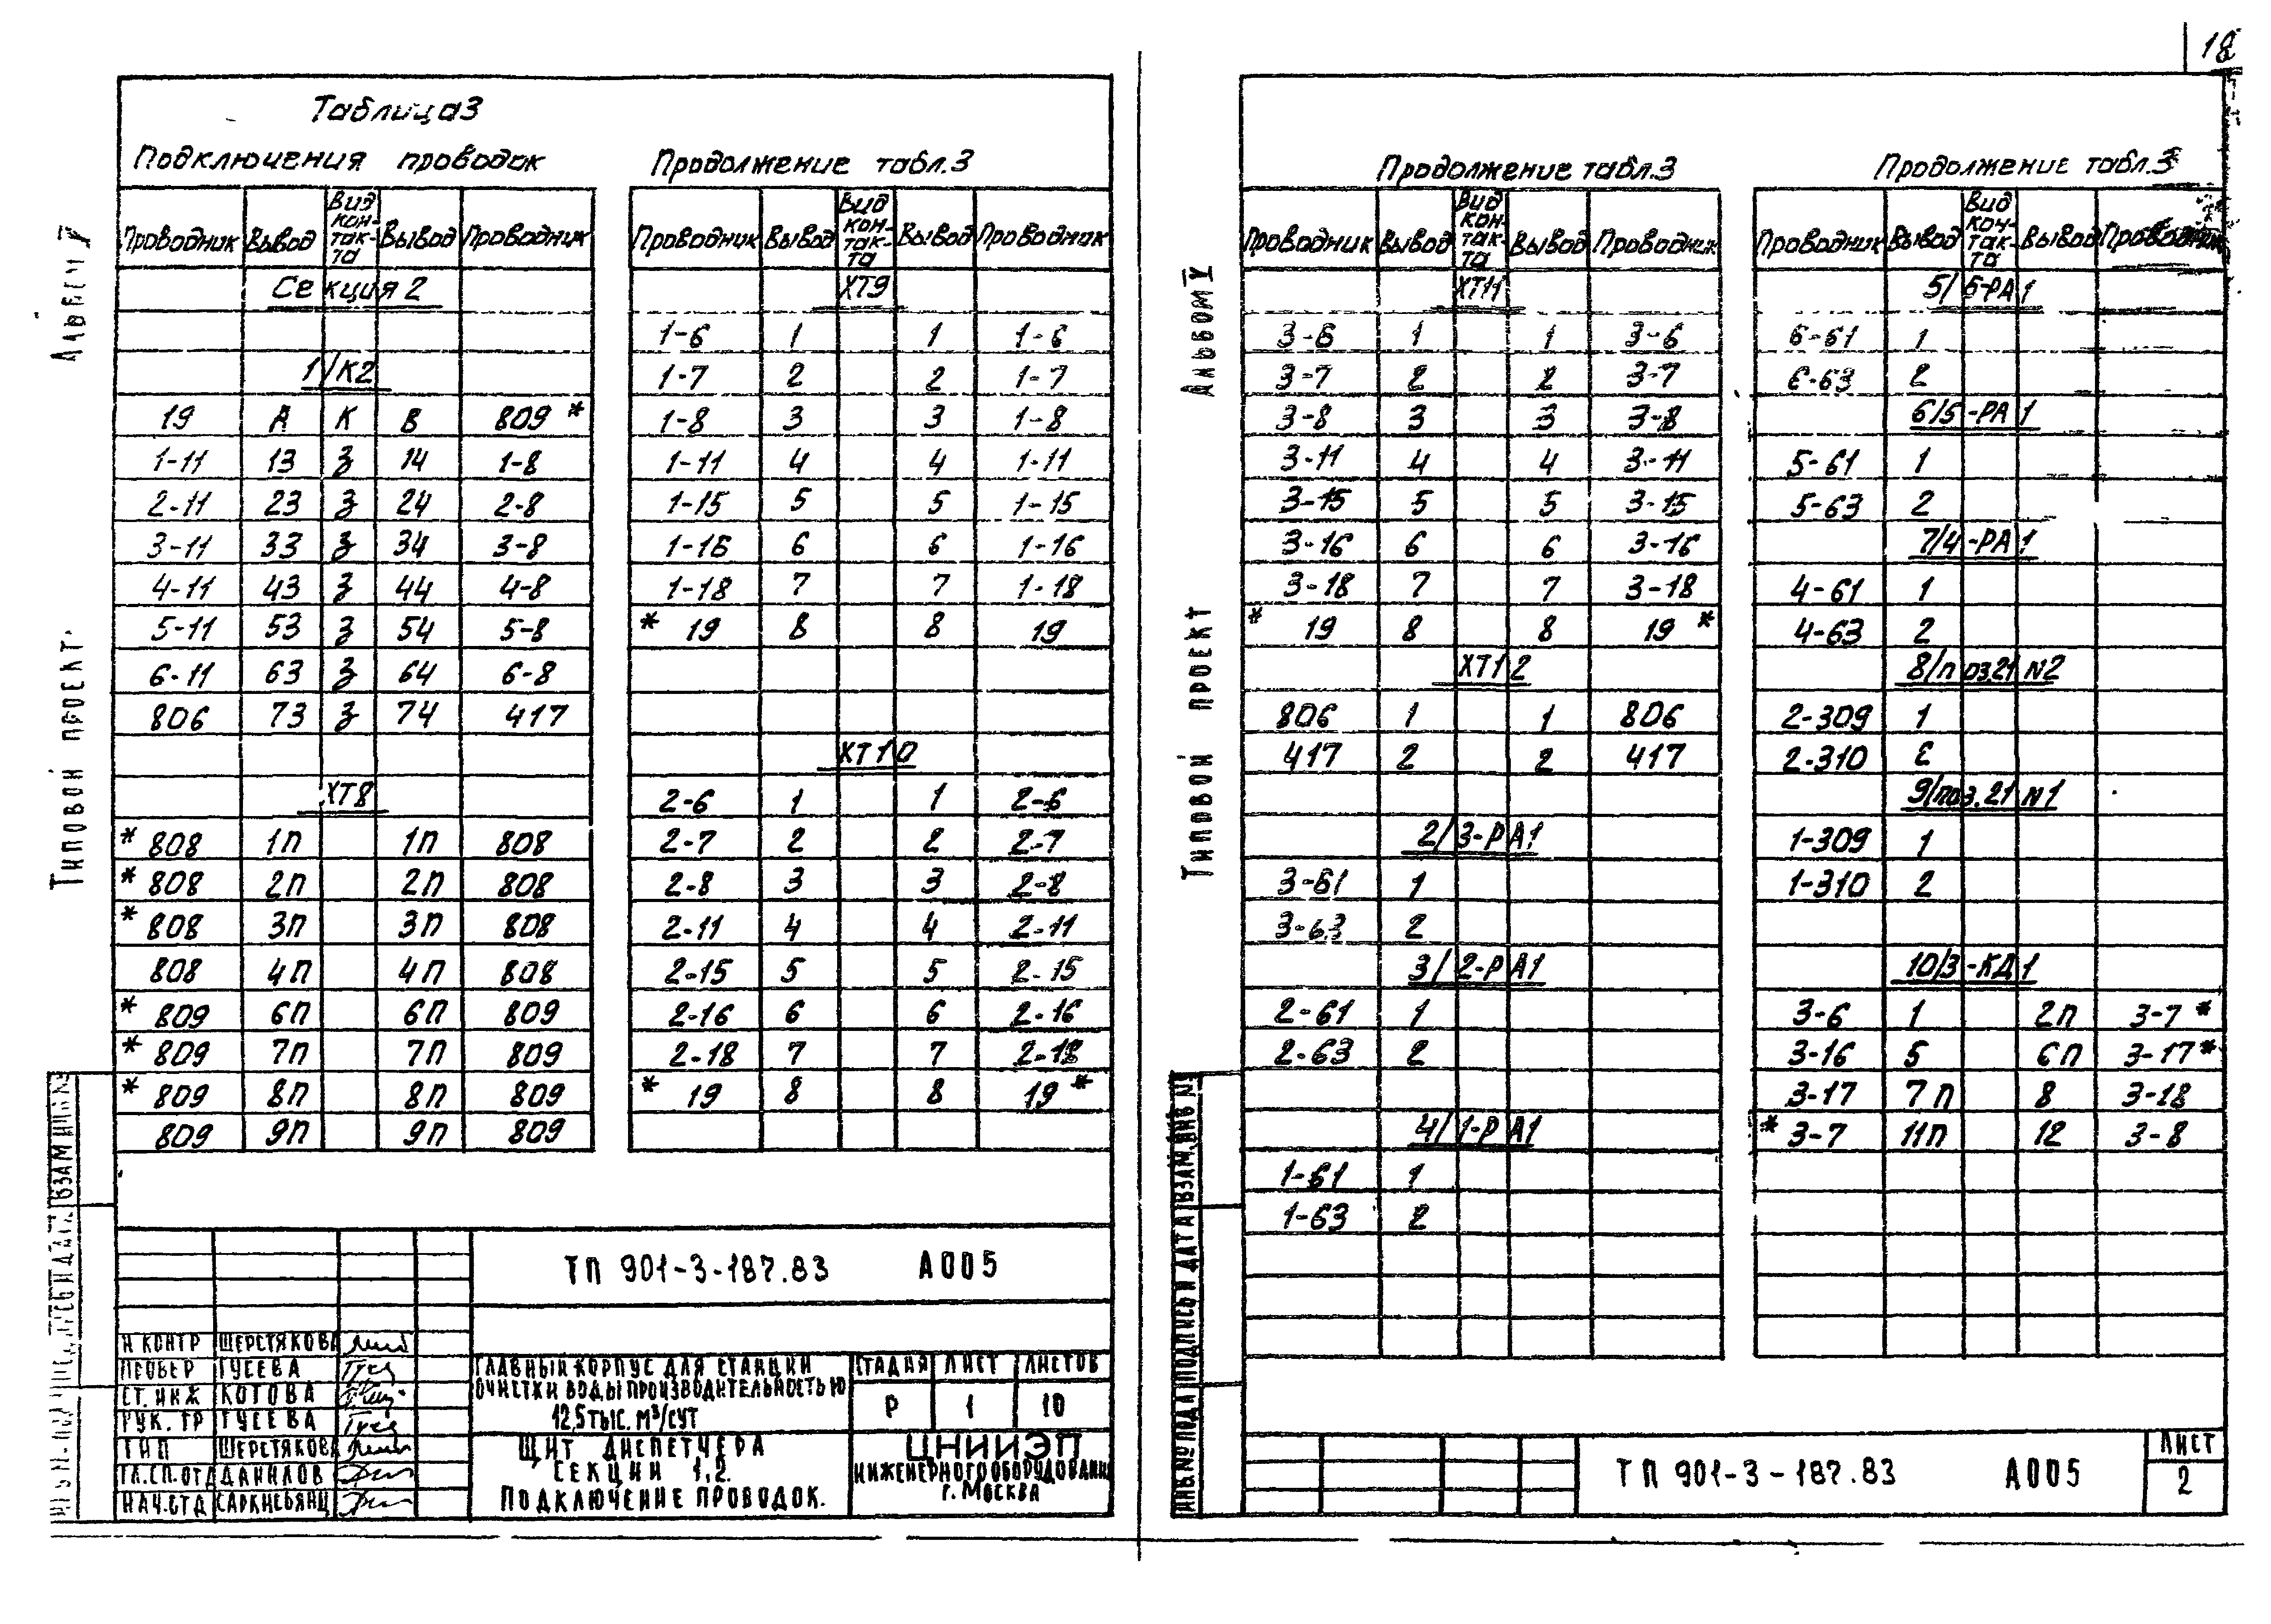 18
Таблица 3
Подключения проводок
Проводник Вывод Вид кон-так-та Вывод Проводник
Секция 2
1/К2
19 А К В 809 *
1-11 13 з 14 1-8
2-11 23 з 24 2-8
3-11 33 з 34 3-8
4-11 43 з 44 4-8
5-11 53 з 54 5-8
6-11 63 з 64 6-8
806 73 з 74 417
ХТ8
* 808 1П 1П 808
* 808 2П 2П 808
* 808 3П 3П 808
808 4П 4П 808
* 809 6П 6П 809
* 809 7П 7П 809
* 809 8П 8П 809
809 9П 9П 809
Продолжение табл.3
Проводник Вывод Вид кон-так-та Вывод Проводник
ХТ9
1-6 1 1 1-6
1-7 2 2 1-7
1-8 3 3 1-8
1-11 4 4 1-11
1-15 5 5 1-15
1-16 6 6 1-16
1-18 7 7 1-18
* 19 8 8 19
ХТ10
2-6 1 1 2-6
2-7 2 2 2-7
2-8 3 3 2-8
2-11 4 4 2-11
2-15 5 5 2-15
2-16 6 6 2-16
2-18 7 7 2-18
* 19 8 8 19 *
Альбом V
Типовой проект
ТП 901-3-187.83 А005
Н КОНТР ШЕРСТЯКОВА
ПРОВЕР ГУСЕВА
СТ. ИНЖ КОТОВА
РУК. ГР ГУСЕВА
ГИП ШЕРСТЯКОВА
ГЛ.СП.ОТД ДАНИЛОВ
НАЧ.ОТД
ГЛАВНЫЙ КОРПУС ДЛЯ СТАНЦИИ
ОЧИСТКИ ВОДЫ ПРОИЗВОДИТЕЛЬНОСТЬЮ
12,5 ТЫС. М³/СУТ
СТАДИЯ ЛИСТ ЛИСТОВ
Р 1 10
ЩИТ ДИСПЕТЧЕРА
СЕКЦИИ 1,2.
ПОДКЛЮЧЕНИЕ ПРОВОДОК.
ЦНИИЭП
ИНЖЕНЕРНОГО ОБОРУДОВАНИЯ
г. МОСКВА
Продолжение табл.3
Проводник Вывод Вид кон-так-та Вывод Проводник
ХТ11
3-6 1 1 3-6
3-7 2 2 3-7
3-8 3 3 3-8
3-11 4 4 3-11
3-15 5 5 3-15
3-16 6 6 3-16
3-18 7 7 3-18
* 19 8 8 19 *
ХТ12
806 1 1 806
417 2 2 417
2/3-РА1
3-61 1
3-63 2
3/2-РА1
2-61 1
2-63 2
4/1-РА1
1-61 1
1-63 2
Продолжение табл.3
Проводник Вывод Вид кон-так-та Вывод Проводник
5/6-РА1
6-61 1
6-63 2
6/5-РА1
5-61 1
5-63 2
7/4-РА1
4-61 1
4-63 2
8/поз.21 N2
2-309 1
2-310 2
9/поз.21 N1
1-309 1
1-310 2
10/3-КД1
3-6 1 2П 3-7 *
3-16 5 6П 3-17 *
3-17 7П 8 3-18
* 3-7 11П 12 3-8
Альбом V
Типовой проект
ИНВ № ПОДЛ ПОДПИСЬ И ДАТА ВЗАМ.ИНВ №
ТП 901-3-187.83 А005
ЛИСТ
2